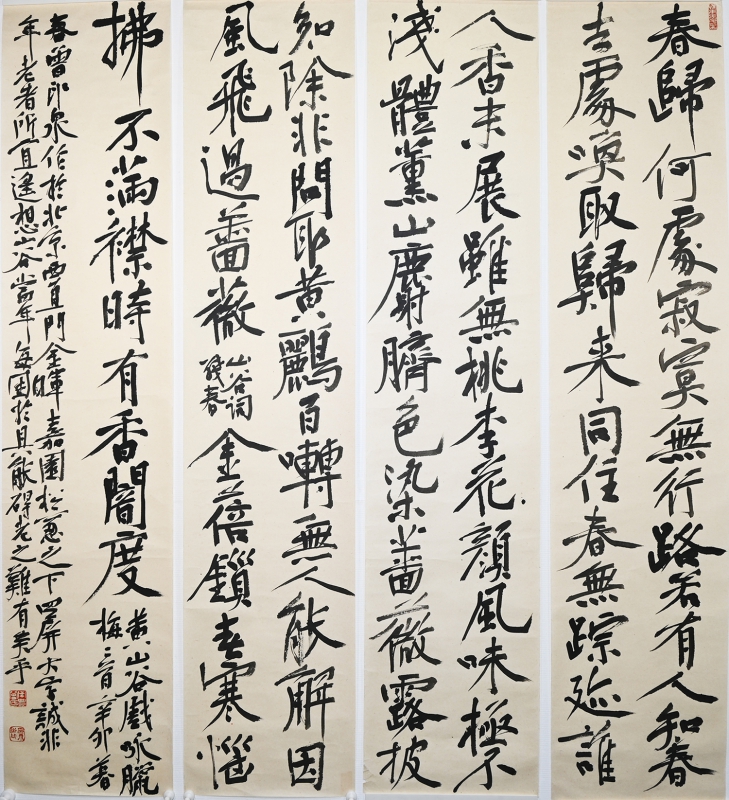 春歸何處寂寞無行路若有人知春
去處喚取歸来同住春無踪迹誰
人香未展雖無桃李花顔風味極不
淺體薰山麝臍色染薔薇露披
知除非問取黄鸝百囀無人能解因
風飛過薔薇
山谷词
春
金蓓鎖春寒惱
拂不滿襟時有香闇度
黄山谷戲咏臘
梅二首辛卯暮
春雷印泉作於北京西直門金暉嘉園之下四屏大字誠非
年老者所宜遙想山谷當年每困於老之難有乎